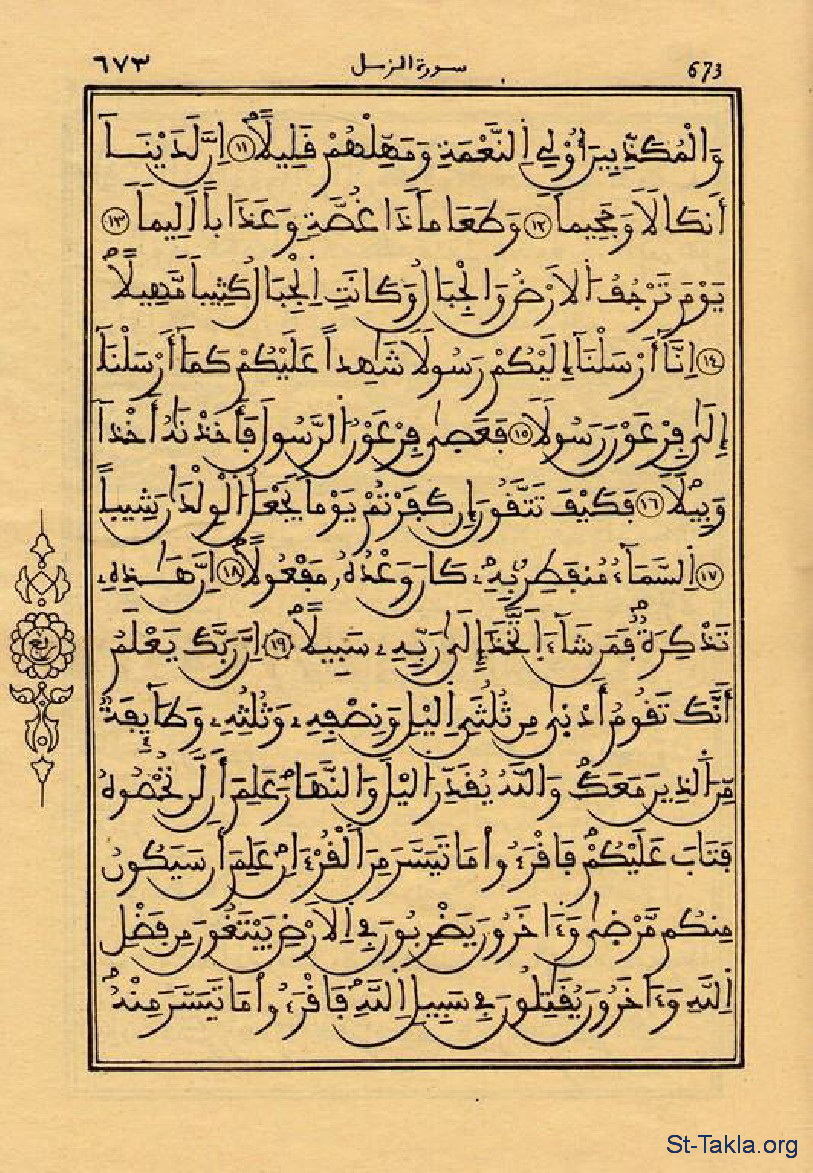 ٦٧٣ سورة المزمل 673
وَالْمُكَذِّبِينَ أُوْلِي اِلنَّعْمَةِ وَمَهِّلْهُمْ قَلِيلًا ۝١١ إِنَّ لَدَيْنَا
أَنكَالًا وَجَحِيماً ۝١٢ وَطَعَاماً ذَا غُصَّةٍ وَعَذَاباً أَلِيماً ۝١٣
يَوْمَ تَرْجُفُ اُلَارْضُ وَالْجِبَالُ وَكَانَتِ اِلْجِبَالُ كَثِيباً مَّهِيلًا
۝١٤ إِنَّا أَرْسَلْنَا إِلَيْكُمْ رَسُولًا شَٰهِداً عَلَيْكُمْ كَمَا أَرْسَلْنَا
إِلَىٰ فِرْعَوْنَ رَسُولًا ۝١٥ فَعَصَىٰ فِرْعَوْنُ اُلرَّسُولَ فَأَخَذْنَٰهُ أَخْذاً
وَبِيلًا ۝١٦ فَكَيْفَ تَتَّقُونَ إِن كَفَرْتُمْ يَوْماً يَجْعَلُ اُلْوِلْدَٰنَ شِيباً
۝١٧ اِلسَّمَاءُ مُنفَطِرٌ بِهِ كَانَ وَعْدُهُ مَفْعُولًا ۝١٨ إِنَّ هَٰذِهِ
تَذْكِرَةٌ فَمَن شَاءَ اَتَّخَذَ إِلَىٰ رَبِّهِ سَبِيلًا ۝١٩ إِنَّ رَبَّكَ يَعْلَمُ
أَنَّكَ تَقُومُ أَدْنَىٰ مِن ثُلُثَيِ اِليْلِ وَنِصْفِهِ وَثُلُثِهِ وَطَائِفَةٌ
مِّنَ اَلذِينَ مَعَكَ وَاللَّهُ يُقَدِّرُ اُليْلَ وَالنَّهَارَ عَلِمَ أَن لَّن تُحْصُوهُ
فَتَابَ عَلَيْكُمْ فَاقْرَءُواْ مَا تَيَسَّرَ مِنَ اَلْقُرْءَانِ عَلِمَ أَن سَيَكُونُ
مِنكُم مَّرْضَىٰ وَءَاخَرُونَ يَضْرِبُونَ فِي اِلَارْضِ يَبْتَغُونَ مِن فَضْلِ
اِللَّهِ وَءَاخَرُونَ يُقَٰتِلُونَ فِي سَبِيلِ اِللَّهِ فَاقْرَءُواْ مَا تَيَسَّرَ مِنْهُ
St-Takla.org